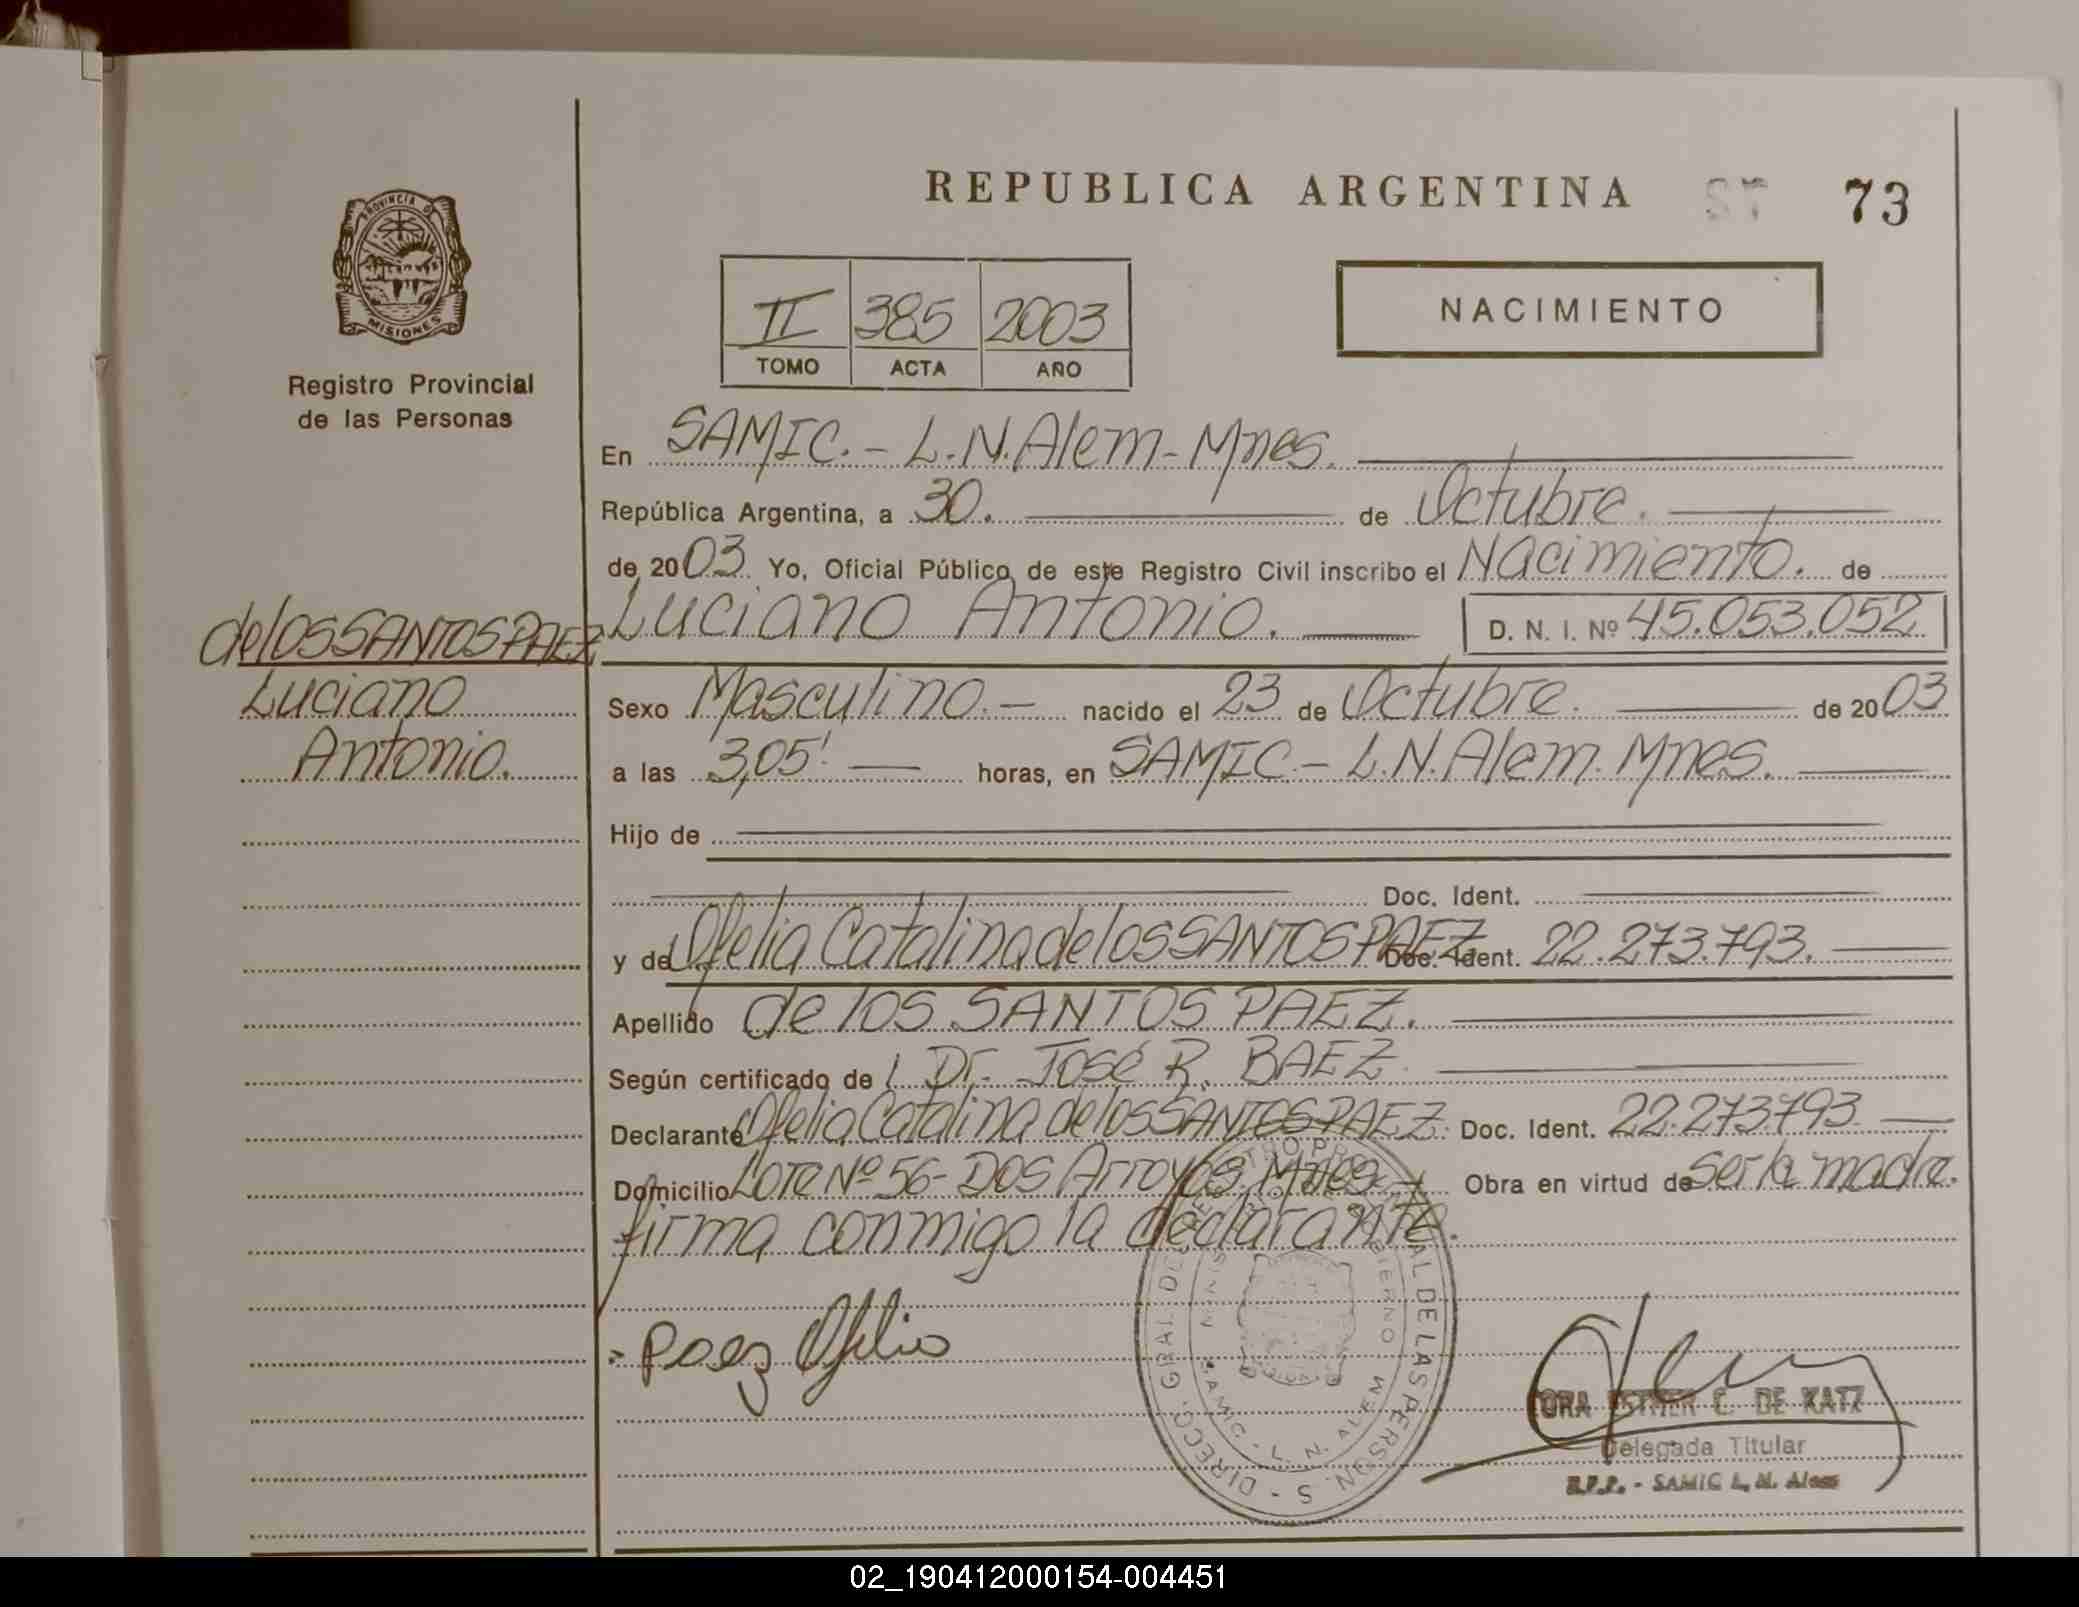 REPUBLICA ARGENTINA 73
PROVINCIA DE
MISIONES
Registro Provincial
de las Personas
II 385 2003
TOMO ACTA AÑO
NACIMIENTO
En SAMIC.- L.N.Alem-Mnes.
República Argentina, a 30. de Octubre.
de 2003 Yo, Oficial Público de este Registro Civil inscribo el Nacimiento. de
Luciano Antonio. D. N. I. Nº 45.053.052
de los SANTOS PAEZ
Luciano
Antonio.
Sexo Masculino.- nacido el 23 de Octubre. de 2003
a las 3,05' horas, en SAMIC.- L.N.Alem. Mnes.
Hijo de
Doc. Ident.
y de Ofelia Catalina de los SANTOS PAEZ Doc. Ident. 22.273.793.
Apellido de los SANTOS PAEZ.
Según certificado de Dr. José R. BAEZ
Declarante Ofelia Catalina de los SANTOS PAEZ. Doc. Ident. 22.273.793
Domicilio Lote Nº 56- DOS Arroyos, Mnes Obra en virtud de ser la madre.
firma conmigo la declarante.
Paez Ofelia
DIRECC. GRAL. DE LAS PERSON. S
SAMIC - L. N. ALEM
ESTHER C. DE KATZ
Delegada Titular
R.P.P. - SAMIC L. N. Alem
02_190412000154-004451